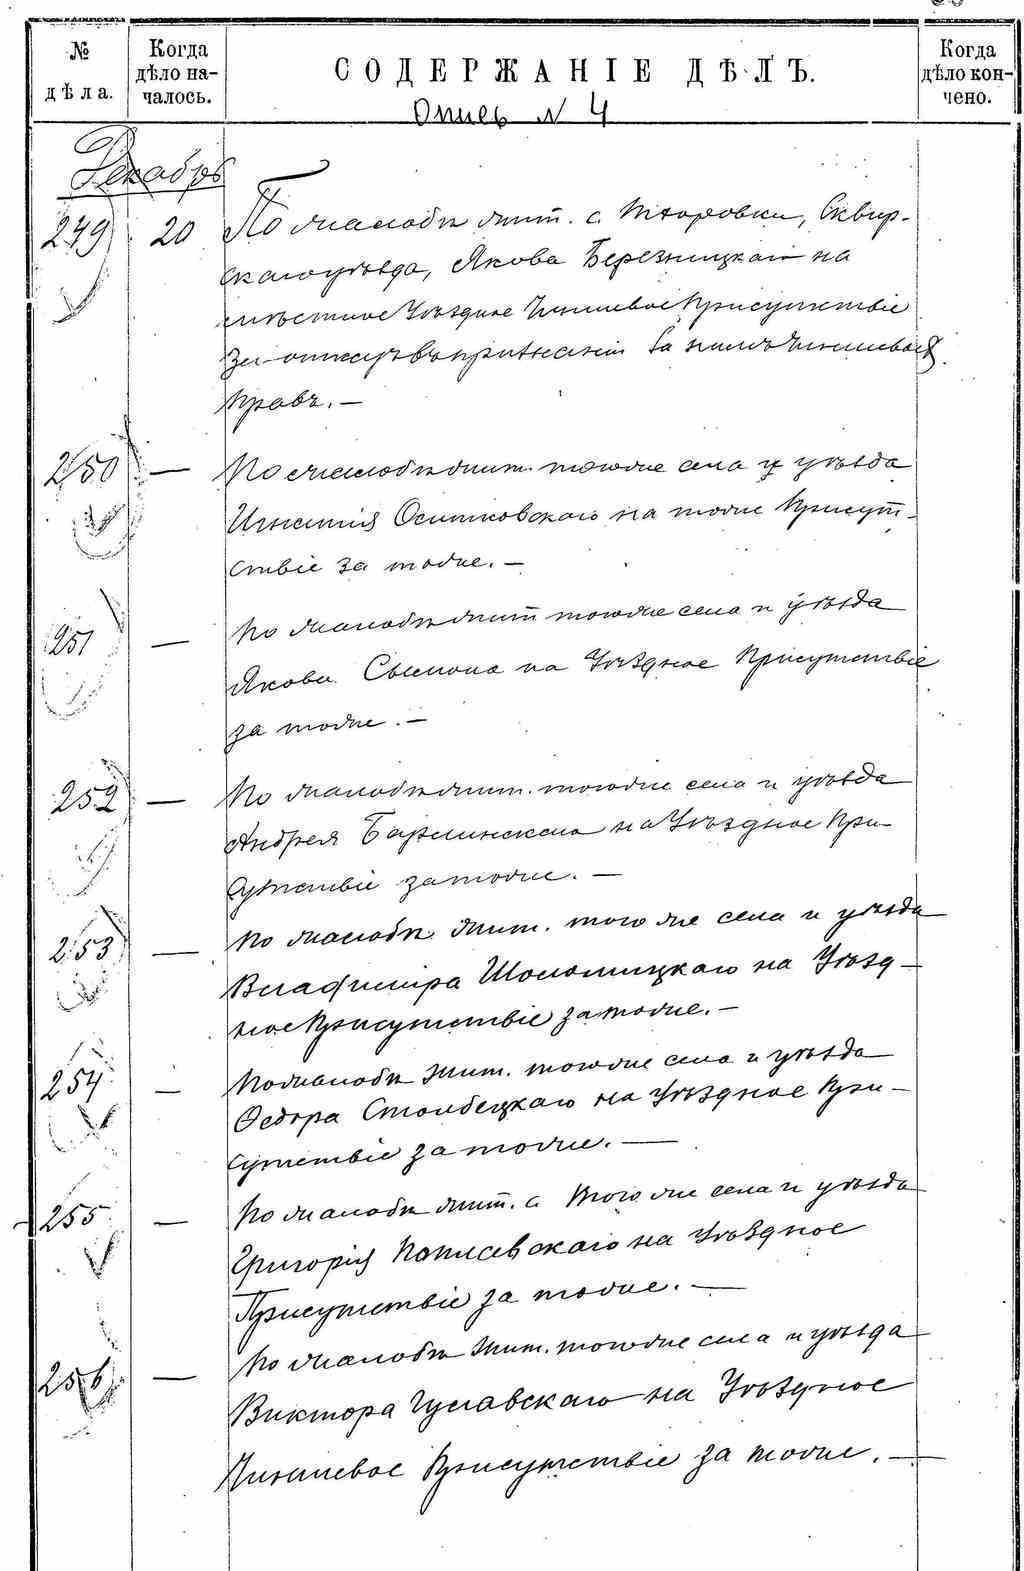 № дѣла.
Когда дѣло началось.
СОДЕРЖАНІЕ ДѢЛЪ.
Когда дѣло кончено.
Опись N 4
Декабрь
249 20 По жалобѣ жит. с. Сквир-
скаго уѣзда, Якова Березницкаго на
мѣстное Уѣздное Чиншевое Присутствіе
за отказъ въ признаніи за нимъ чиншевыхъ
правъ. —
250 — По жалобѣ жит. тогоже села и уѣзда
Игнатія Оситковскаго на тоже Присут-
ствіе за тоже. —
251 — По жалобѣ жит. тогоже села и уѣзда
Якова на Уѣздное Присутствіе
за тоже. —
252 — По жалобѣ жит. тогоже села и уѣзда
Андрея на Уѣздное При-
сутствіе за тоже. —
253 — По жалобѣ жит. того же села и уѣзда
Владиміра Шоломицкаго на Уѣзд-
ное Присутствіе за тоже. —
254 — По жалобѣ жит. тогоже села и уѣзда
Ѳедора Столбецкаго на Уѣздное При-
сутствіе за тоже. —
255 — По жалобѣ жит. с. того же села и уѣзда
Григорія Поплавскаго на Уѣздное
Присутствіе за тоже. —
256 — По жалобѣ жит. тогоже села и уѣзда
Виктора Гуславскаго на Уѣздное
Чиншевое Присутствіе за тоже. —